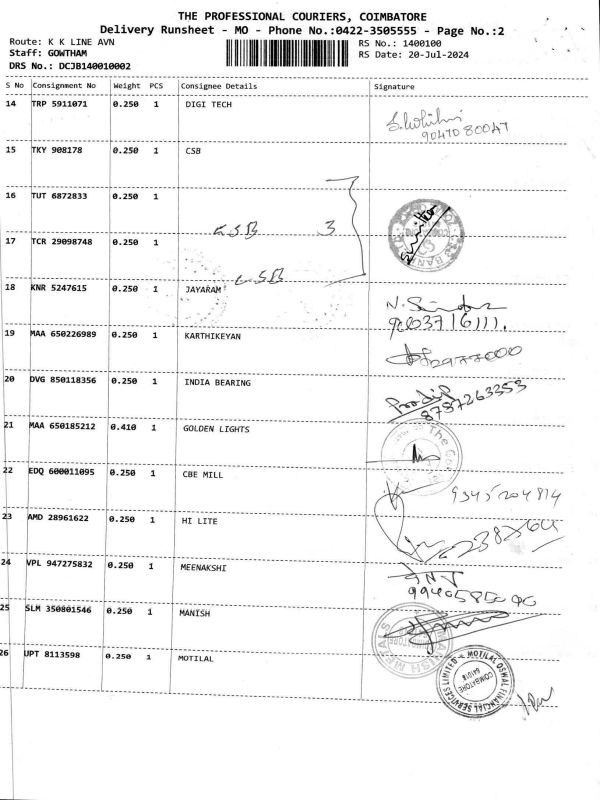 THE PROFESSIONAL COURIERS, COIMBATORE
Delivery Runsheet - MO - Phone No.:0422-3505555 - Page No.:2
Route: K K LINE AVN RS No.: 1400100
Staff: GOWTHAM RS Date: 20-Jul-2024
DRS No.: DCJB140010002
S No Consignment No Weight PCS Consignee Details Signature
14 TRP 5911071 0.250 1 DIGI TECH
90470 80047
15 TKY 908178 0.250 1 CSB
16 TUT 6872833 0.250 1
CSB 3
17 TCR 29098748 0.250 1
CSB
18 KNR 5247615 0.250 1 JAYARAM
9003716111.
19 MAA 650226989 0.250 1 KARTHIKEYAN
20 DVG 850118356 0.250 1 INDIA BEARING
Pradip
8787263353
21 MAA 650185212 0.410 1 GOLDEN LIGHTS
22 EDQ 600011095 0.250 1 CBE MILL
9345204814
23 AMD 28961622 0.250 1 HI LITE
24 VPL 947275832 0.250 1 MEENAKSHI
25 SLM 350801546 0.250 1 MANISH
MANISH METALS
26 UPT 8113598 0.250 1 MOTILAL
MOTILAL OSWAL FINANCIAL SERVICES LIMITED
COIMBATORE